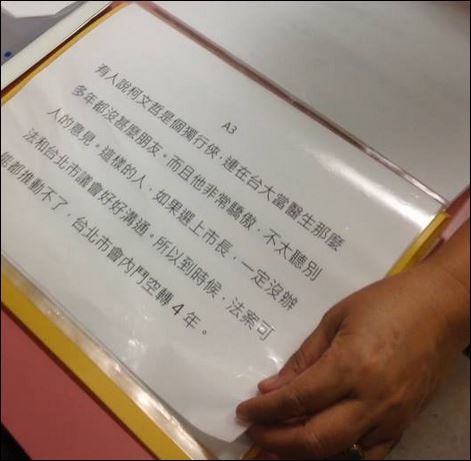 A3
有人說柯文哲是個獨行俠，連在台大當醫生那麼
多年都沒甚麼朋友。而且他非常驕傲，不太聽別
人的意見。這樣的人，如果選上市長，一定沒辦
法和台北市議會好好溝通。所以到時候，法案可
能都推動不了，台北市會內鬥空轉4年。